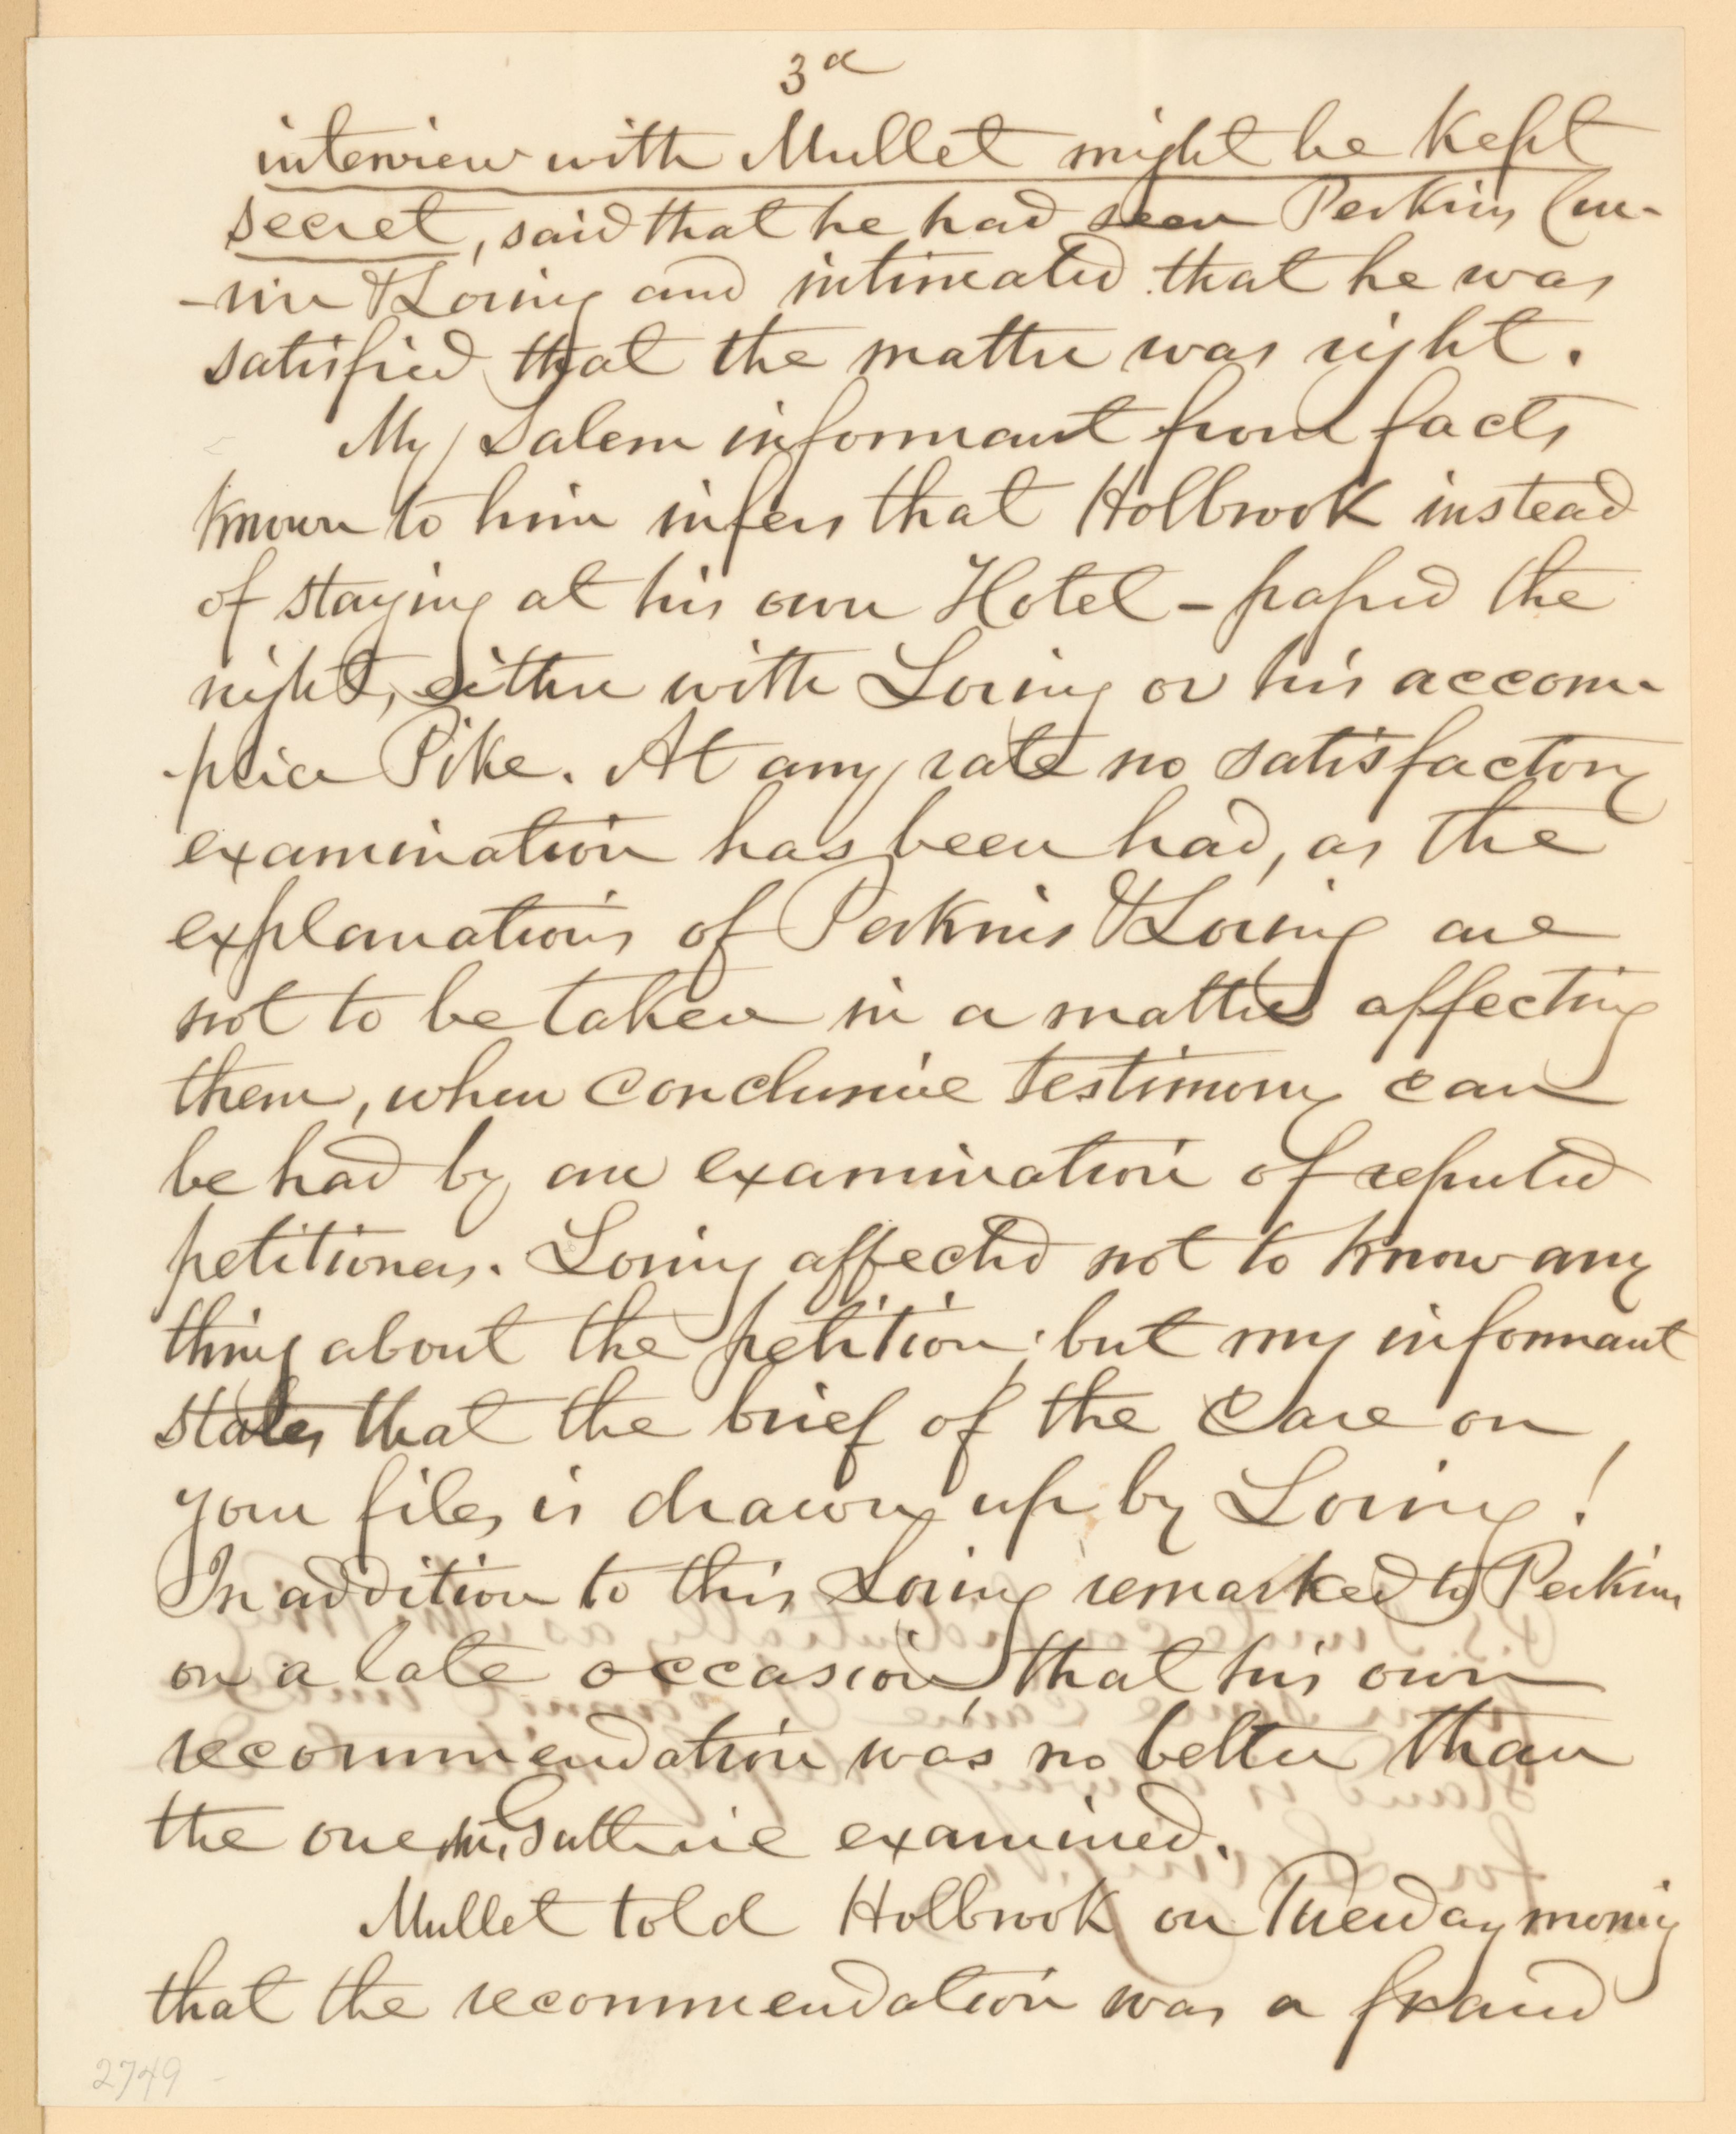 3d
interview with Mullet might be kept
secret, said that he had seen Perkins
& Loring and intimated that he was
satisfied that the matter was right.
My Salem informant from facts
known to him infers that Holbrook instead
of staying at his own Hotel - passed the
night, either with Loring or his accom-
-plice Pike. At any rate no satisfactory
examination has been had, as the
explanations of Perkins & Loring are
not to be taken in a matter affecting
them, when conclusive testimony can
be had by an examination of reputed
petitioners. Loring affected not to know any
thing about the petition; but my informant
states that the brief of the case on
your files is drawn up by Loring!
In addition to this Loring remarked to Perkins
on a late occasion, that his own
recommendation was no better than
the one Mr. Guthrie examined.
Mullet told Holbrook on Tuesday morning
that the recommendation was a fraud
2749